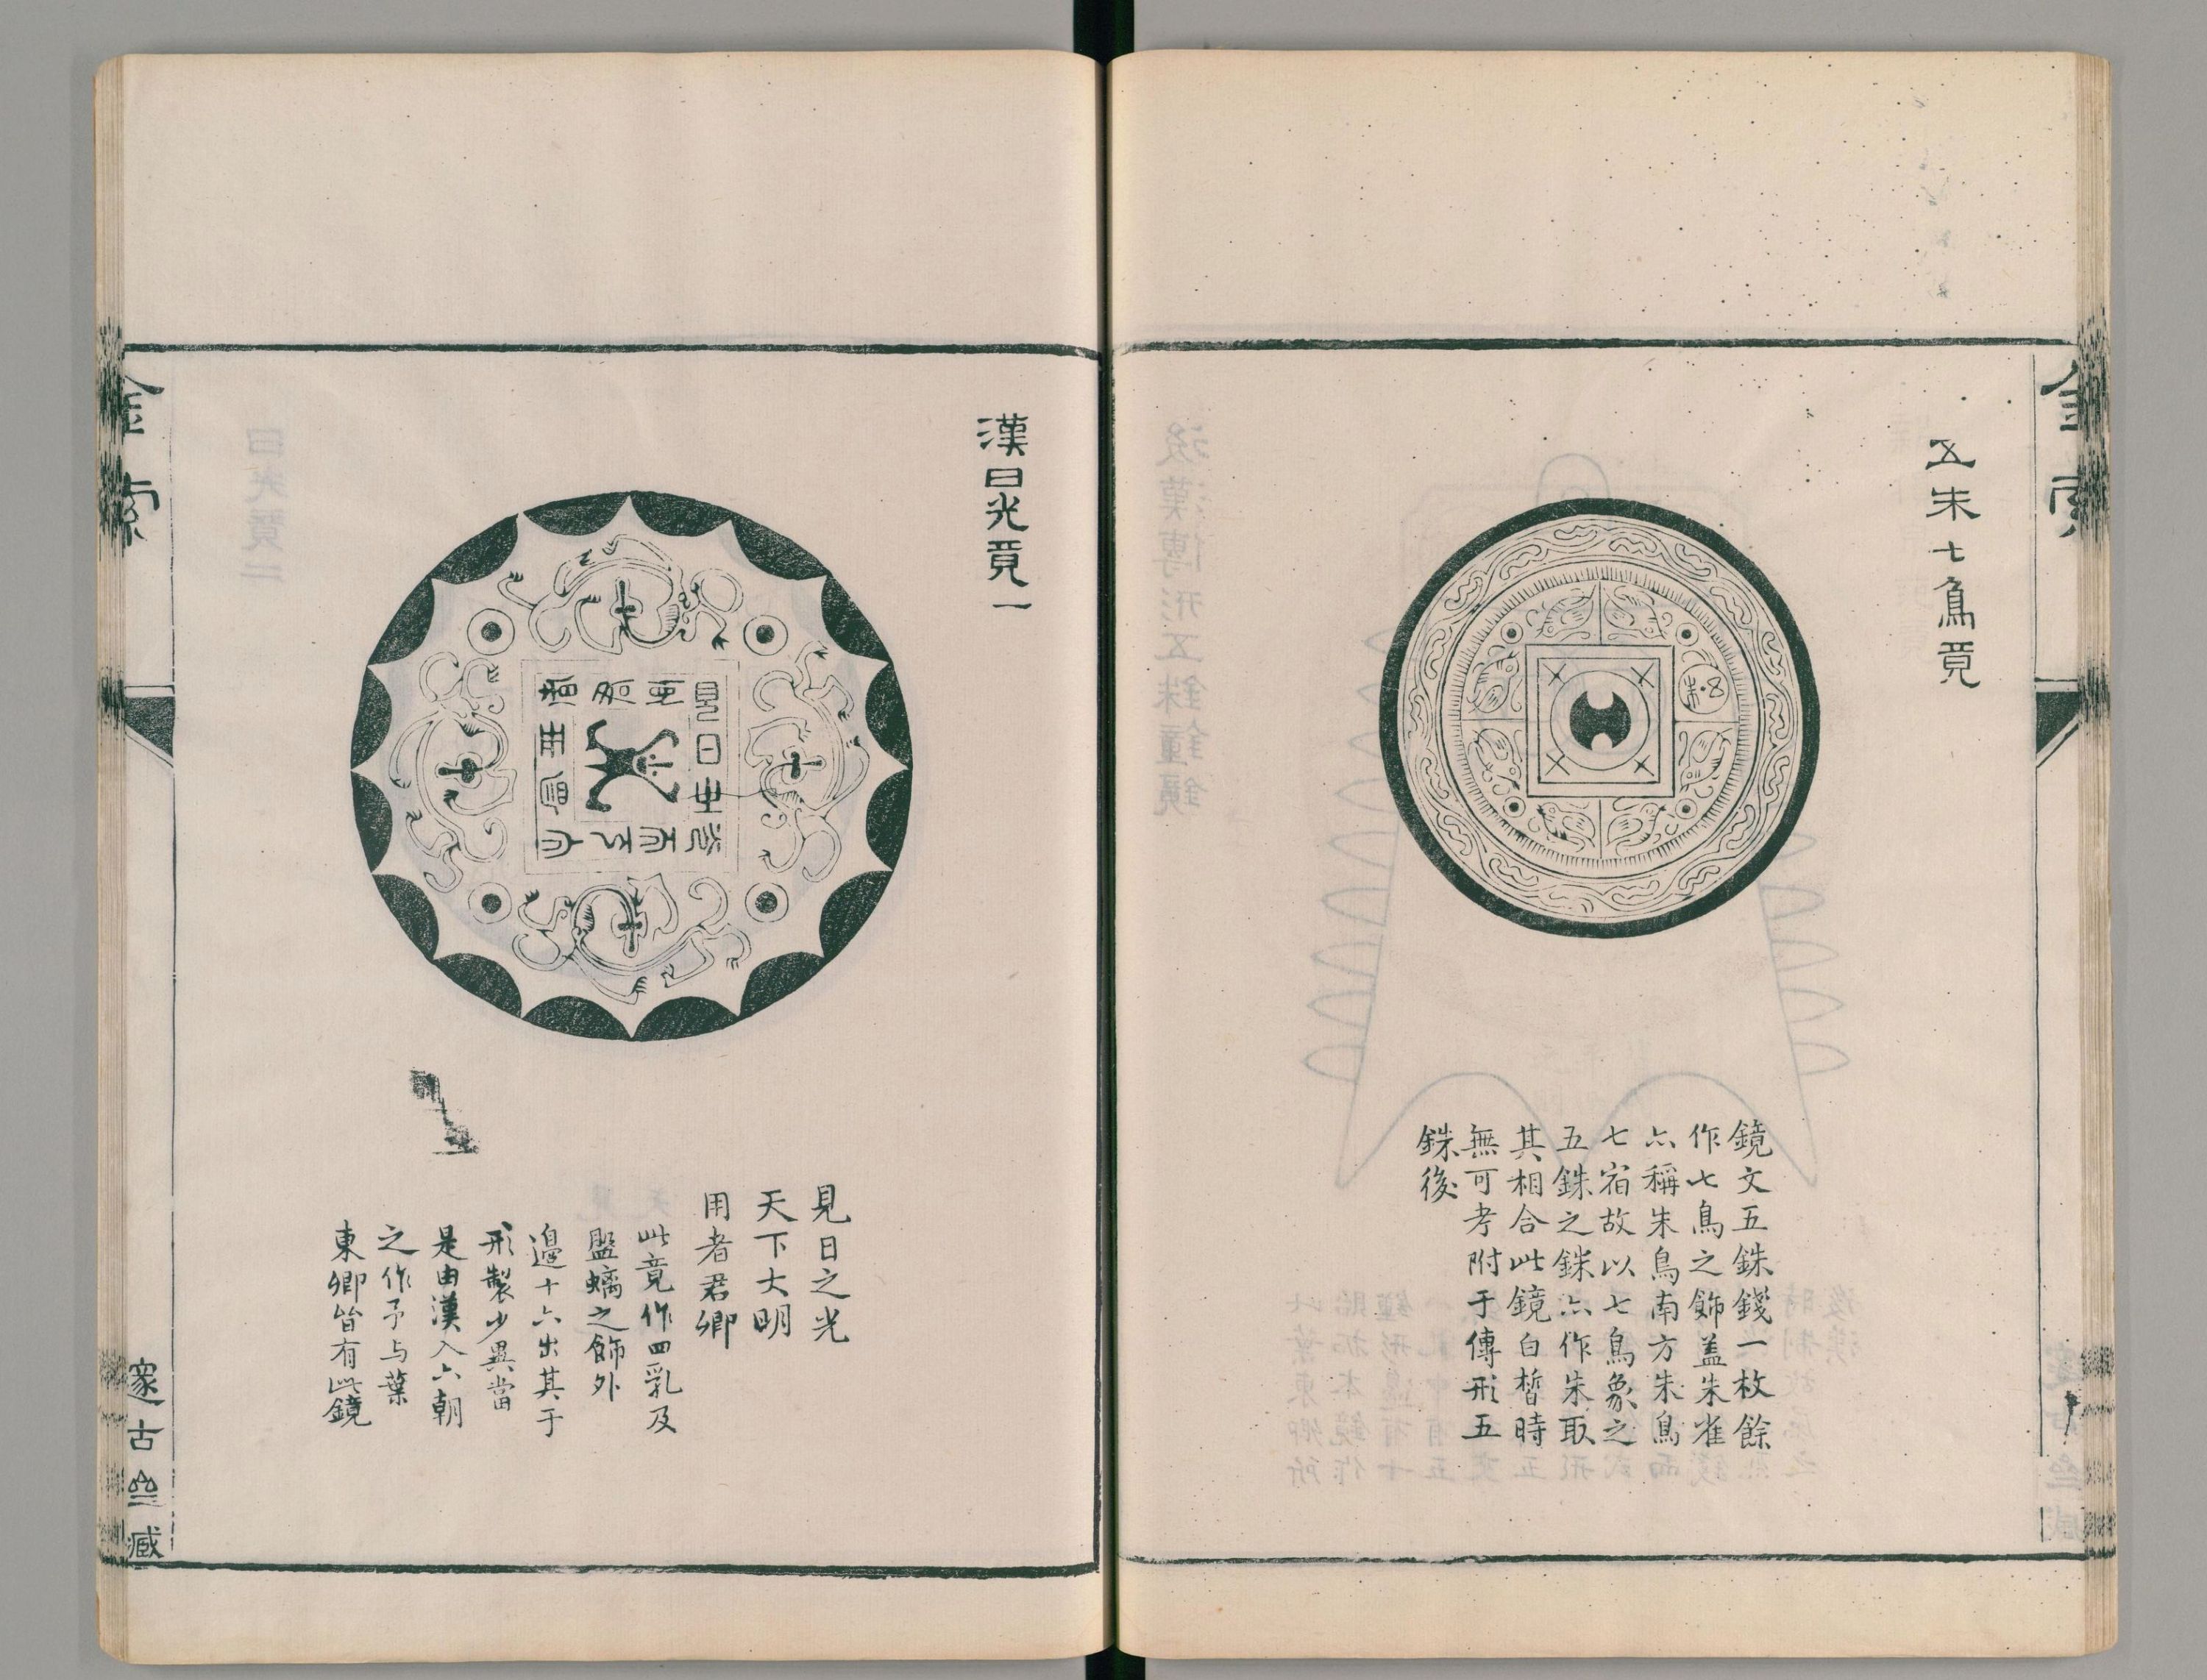 金索
五朱七鳥竟
鏡文五銖錢一枚餘
作七鳥之飾盖朱雀
六稱朱鳥南方朱鳥
七宿故以七鳥象之
五銖之銖六作朱取
其相合此鏡白皙時
無可考附于傳形五
銖後
漢日光竟一
見日之光
天下大明
用者君卿
此竟作四乳及
盤螭之飾外
邉十六出其于
形製少異當
是由漢入六朝
之作予与葉
東卿皆有此鏡
金索
邃古亝臧